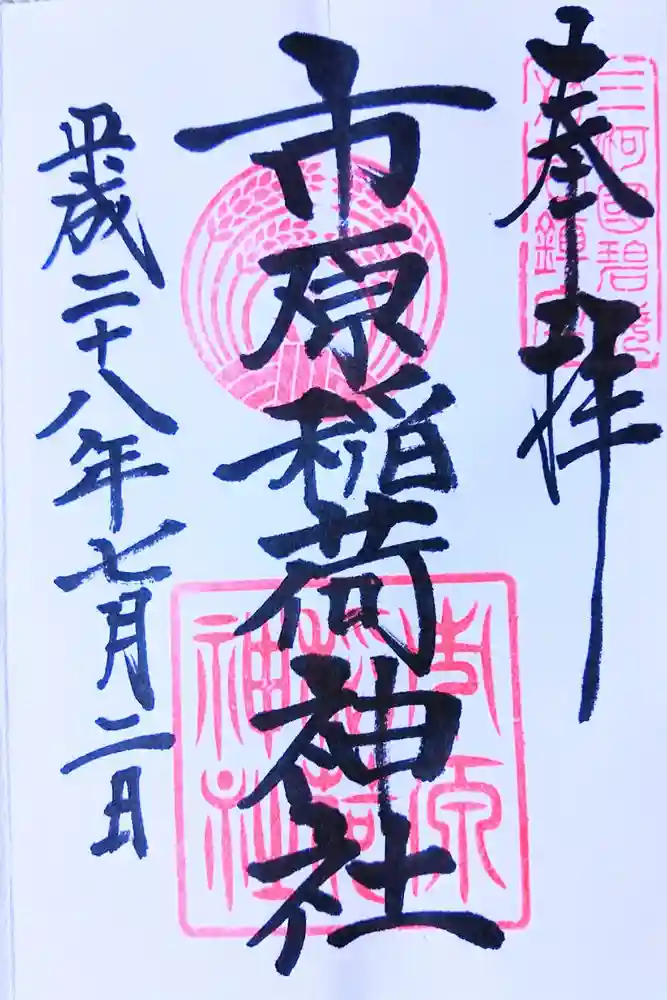 奉拝
三河國碧海
市原稲荷神社
市原稲荷神社
平成二十八年七月二日